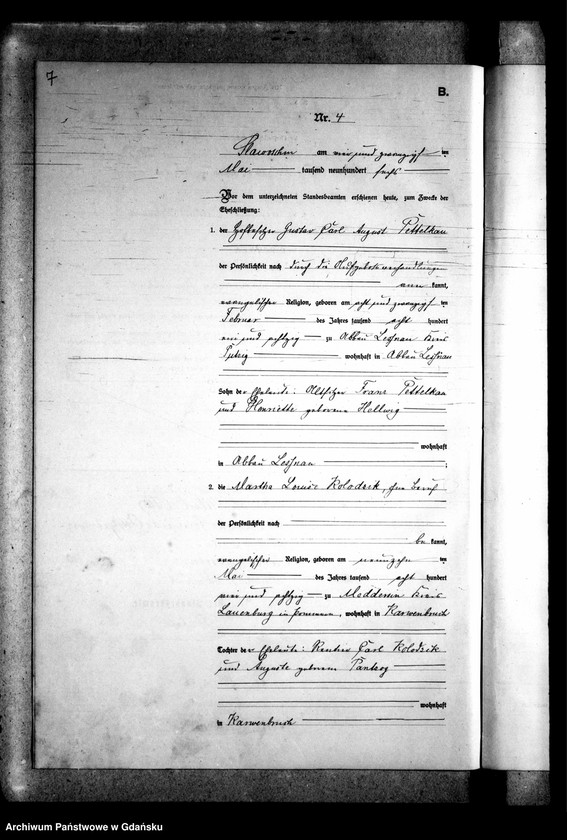 7
B.
Nr. 4
am vier und zwanzigsten
Mai tausend neunhundert sechs
Vor dem unterzeichneten Standesbeamten erschienen heute, zum Zwecke der
Eheschließung:
1. der Hofbesitzer Gustav Carl August Pettelkau
der Persönlichkeit nach durch die Aufgebotsverhandlungen
kannt,
evangelischer Religion, geboren am acht und zwanzigsten
Februar des Jahres tausend acht hundert
und achtzig zu Abbau Lessnau Kreis
Putzig wohnhaft in Abbau Lessnau
Sohn der Eheleute: Altsitzer Franz Pettelkau
und Henriette geborene Hellwig
wohnhaft
in Abbau Lessnau
2. die Martha Louise Kolodzik, ohne Beruf
der Persönlichkeit nach
be kannt,
evangelischer Religion, geboren am neunzehn ten
Mai des Jahres tausend acht hundert
und achtzig zu Meddersin Kreis
Lauenburg in Pommern, wohnhaft in Karwenbruch
Tochter der Eheleute: Rentier Carl Kolodzik
und Auguste geborene
wohnhaft
in Karwenbruch
Archiwum Państwowe w Gdańsku